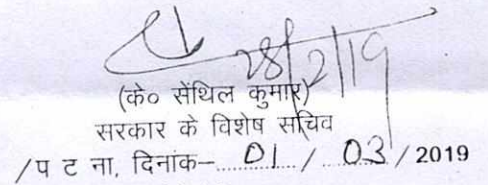 28/2/19
(के० सेंथिल कुमार)
सरकार के विशेष सचिव
/प ट ना, दिनांक– 01 / 03 / 2019